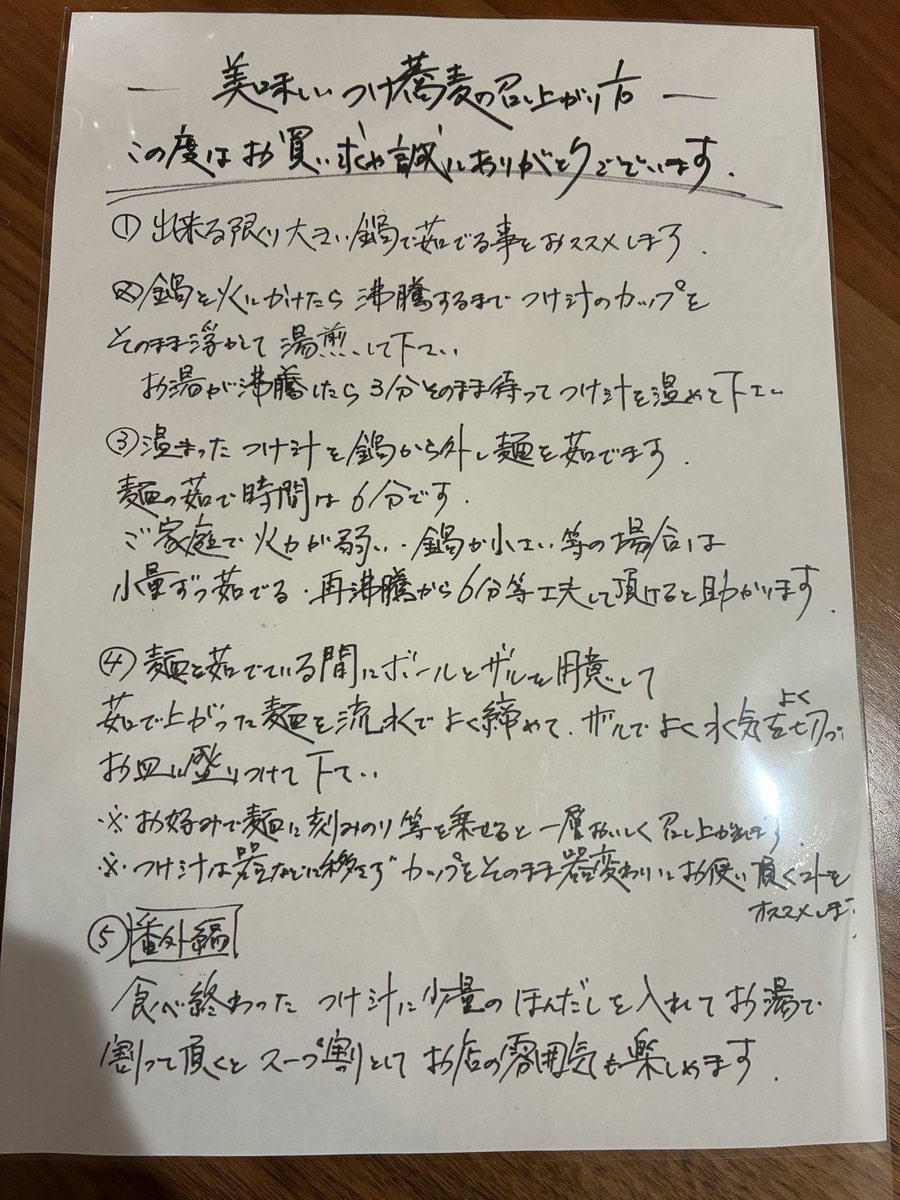 ― 美味しいつけ蕎麦の召し上がり方 ―
この度はお買い求め誠にありがとうございます.
① 出来る限り大きい鍋で茹でる事をおススメします.
②鍋を火にかけたら 沸騰するまで つけ汁のカップを
そのまま浮かして 湯煎して下さい
お湯が沸騰したら 3分そのまま待って つけ汁を温めて下さい
③温まった つけ汁を鍋から外し 麺を茹でます.
麺の茹で時間は 6分です.
ご家庭で 火力が弱い・鍋が小さい等の場合は
小量ずつ茹でる・再沸騰から6分等工夫して頂けると助かります.
④ 麺を茹でている間にボールとザルを用意して
茹で上がった麺を流水でよく締めて、ザルでよく水気をよく切って
お皿に盛りつけて下さい
※ お好み で麺に刻みのり等を乗せると一層おいしく召し上がれます
※ つけ汁は器などに移さずカップをそのまま器変わりにお使い頂く事を
オススメします.
⑤ 番外編
食べ終わった つけ汁に少量の ほんだしを入れてお湯で
割って頂くと スープ割として お店の雰囲気も楽しめます.